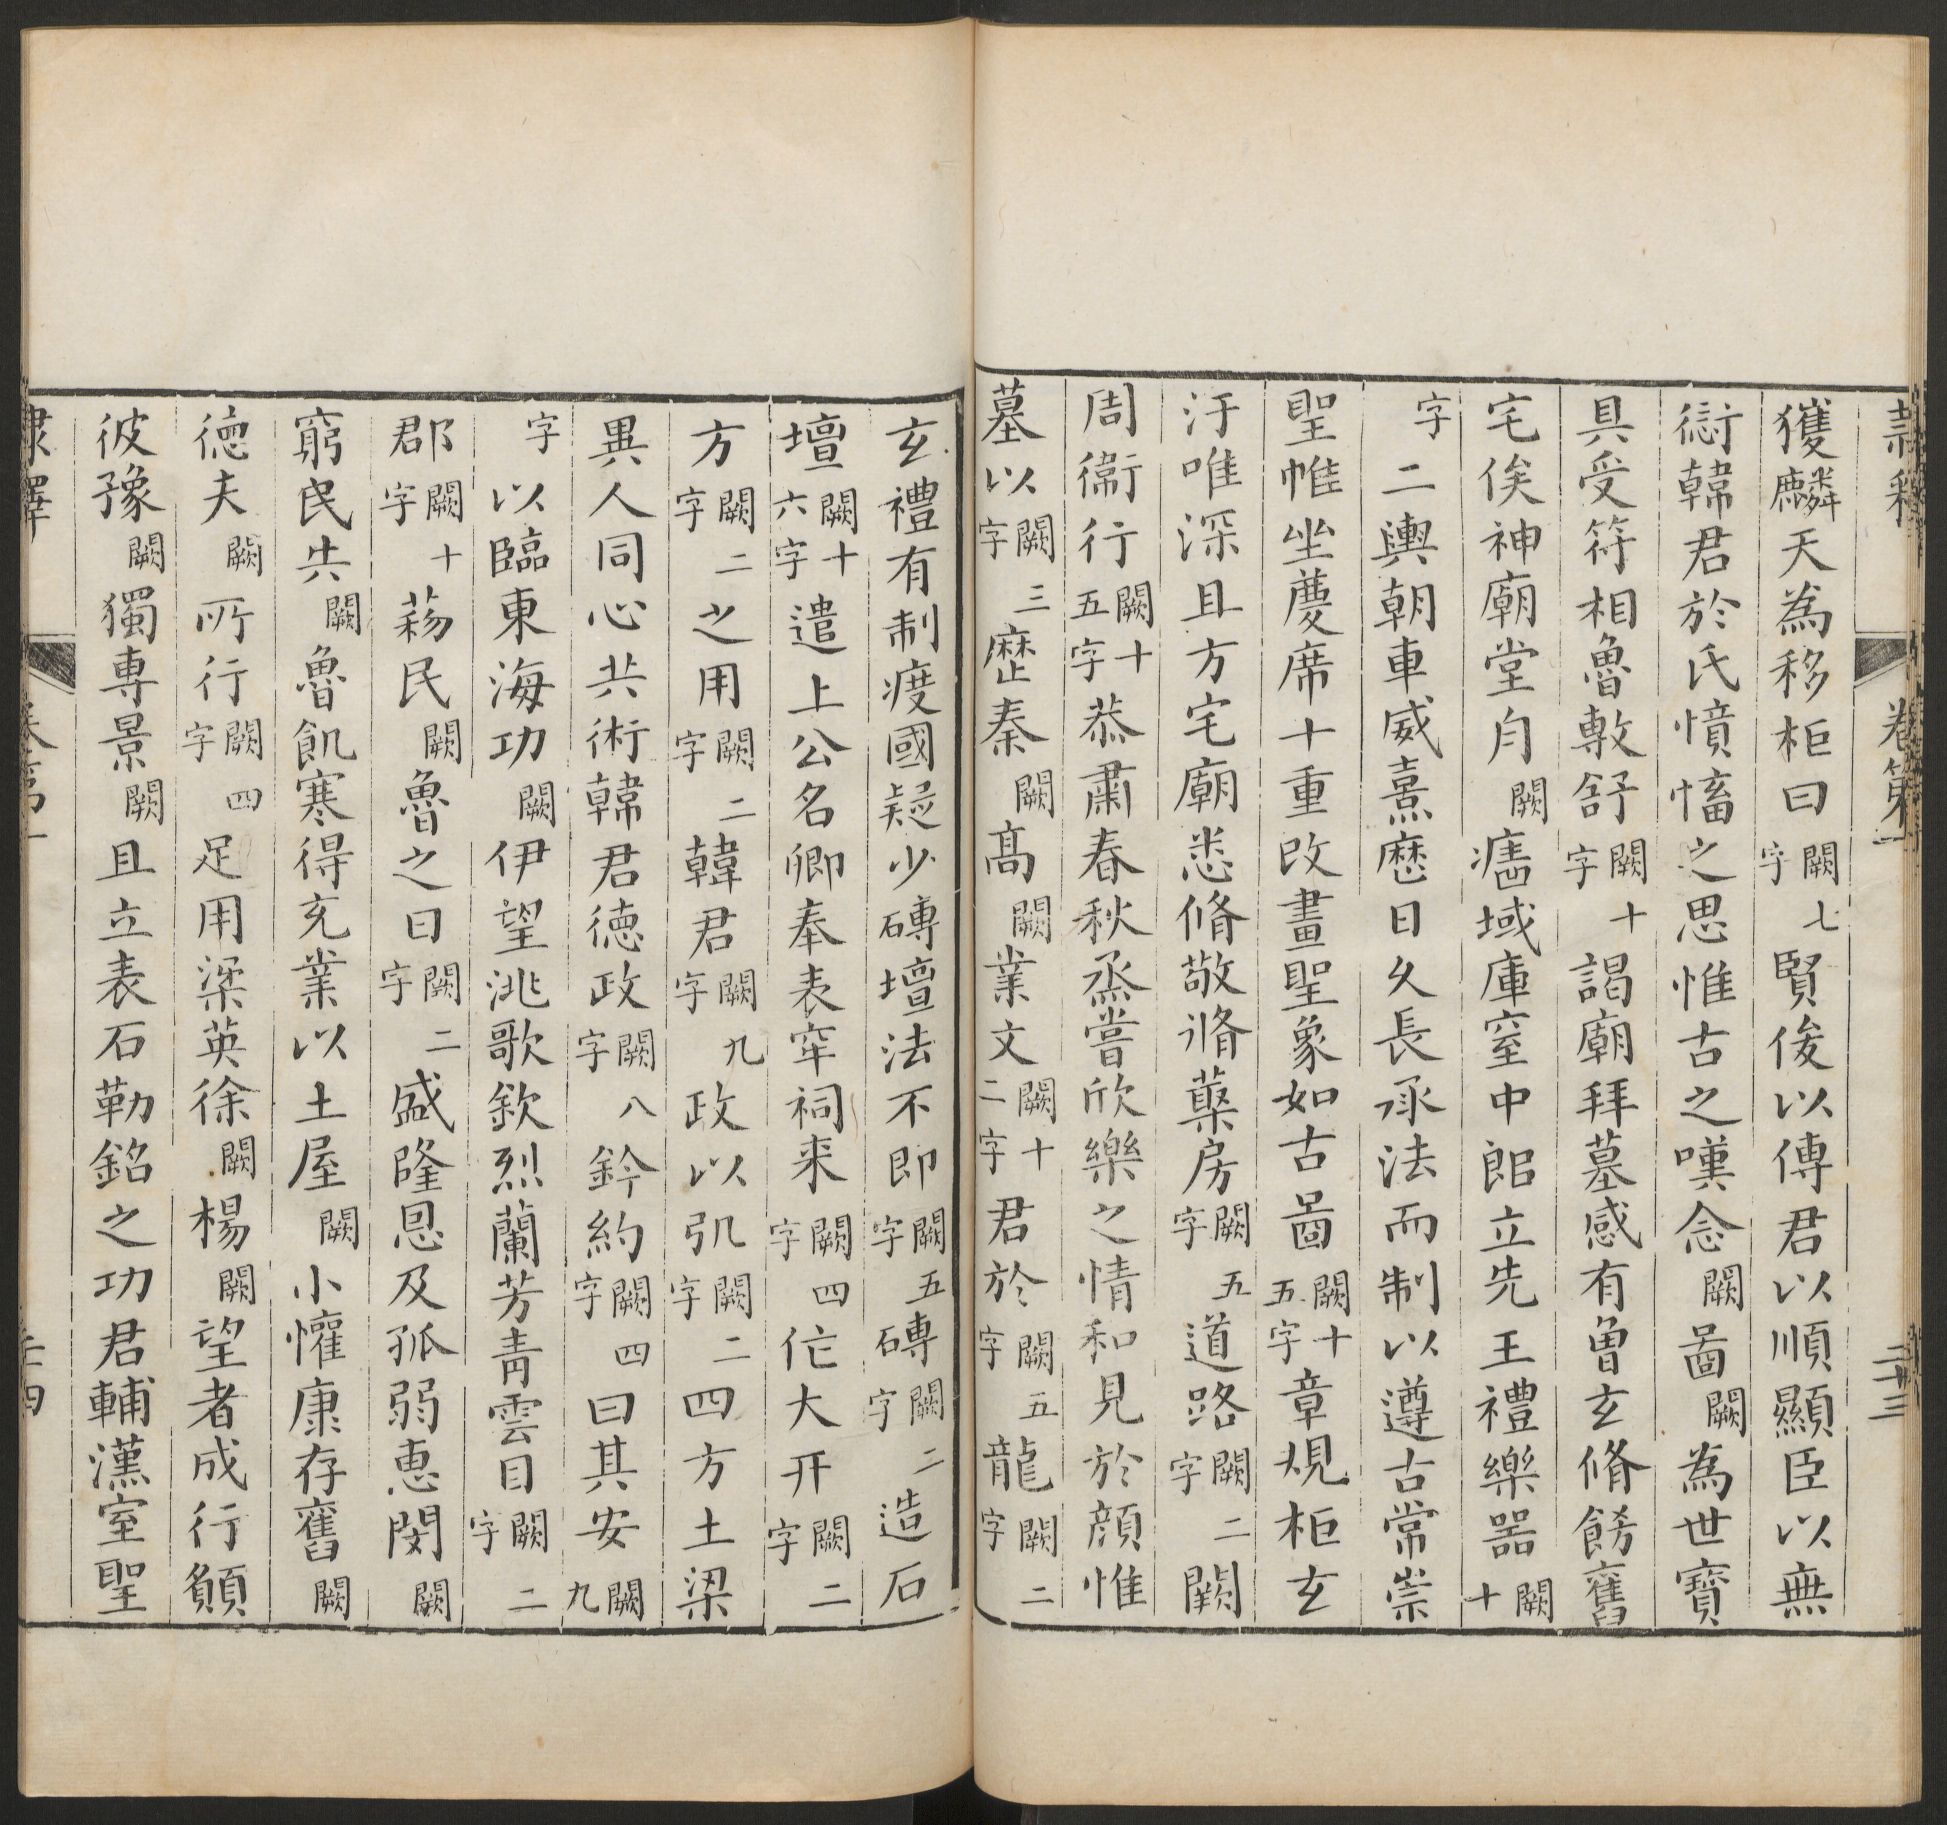 隸釋 卷第一 二十三
獲麟天為移柜曰闕七字賢俊以傳君以順顯臣以無
愆韓君於氏憤愊之思惟古之嘆念闕啚闕為世寶
具受符相魯敷舒闕十字謁廟拜墓感有魯玄脩餝舊
宅俟神廟堂⺝闕㵮域庫窒中郎立先王禮樂器闕十
字二輿朝車威熹歷日久長承法而制以遵古常崇
聖帷坐蓐席十重改畫聖象如古啚闕十五字章規柜玄
汙唯深且方宅廟悉脩敬脩蘗房闕五字道路闕二字闕
周衞行闕十五字恭肅春秋烝嘗欣樂之情和見於顏惟
墓以闕三字歷秦闕高闕業文闕十二字君於闕五字龍闕二字
玄禮有制度國疑少磚壇法不即闕五字磚闕二字造石
壇闕十六字遣上公名卿奉表牢祠来闕四字佗大开闕二字
方闕二字之用闕二字韓君闕九字政以㧈闕二字四方土梁
異人同心共術韓君德政闕八字鈐約闕四字曰其安闕九
字以臨東海功闕伊望洮歌欽烈蘭芳青雲目闕二字
郡闕十字蕩民闕魯之日闕二字盛隆恩及孤弱惠閔闕
窮民共闕魯飢寒得充業以土屋闕小懽康存舊闕
德夫闕所行闕四字足用梁英徐闕楊闕望者成行願
彼豫闕獨專景闕且立表石勒銘之功君輔漢室聖
隸釋 卷第一 二十四